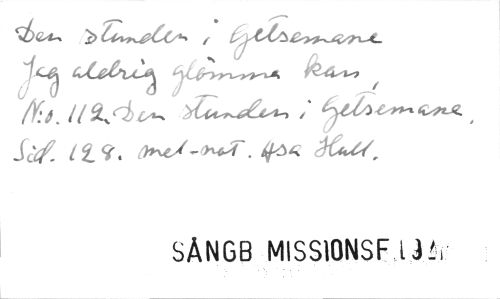 Den stunden i Getsemane
Jag aldrig glömma kan,
N:o. 112. Den stunden i Getsemane.
Sid. 128. mel-not. Asa Hull.
SÅNGB MISSIONSF.